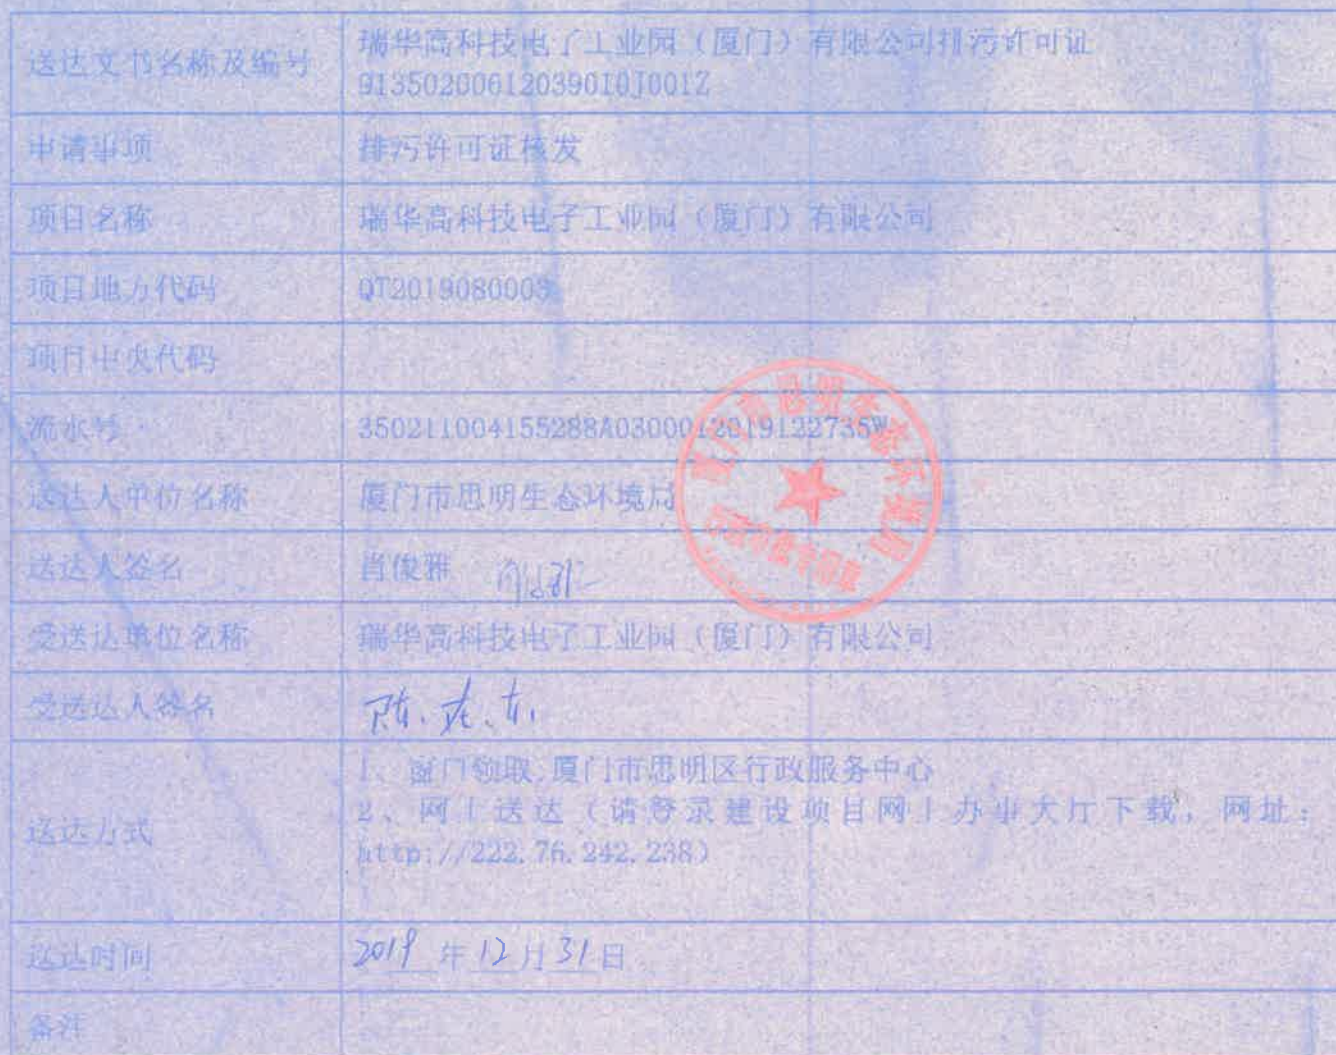 送达文书名称及编号
瑞华高科技电子工业园（厦门）有限公司排污许可证
91350200612039010J001Z
申请事项
排污许可证核发
项目名称
瑞华高科技电子工业园（厦门）有限公司
项目地方代码
QT2019080003
项目中央代码
流水号
350211004155288A0300012019122735W
送达人单位名称
厦门市思明生态环境局
厦门市思明生态环境局
送达人签名
肖俊雅
受送达单位名称
瑞华高科技电子工业园（厦门）有限公司
受送达人签名
送达方式
1、窗口领取,厦门市思明区行政服务中心
2、网上送达（请登录建设项目网上办事大厅下载，网址：
http://222.76.242.238）
送达时间
2019 年 12 月 31 日
备注